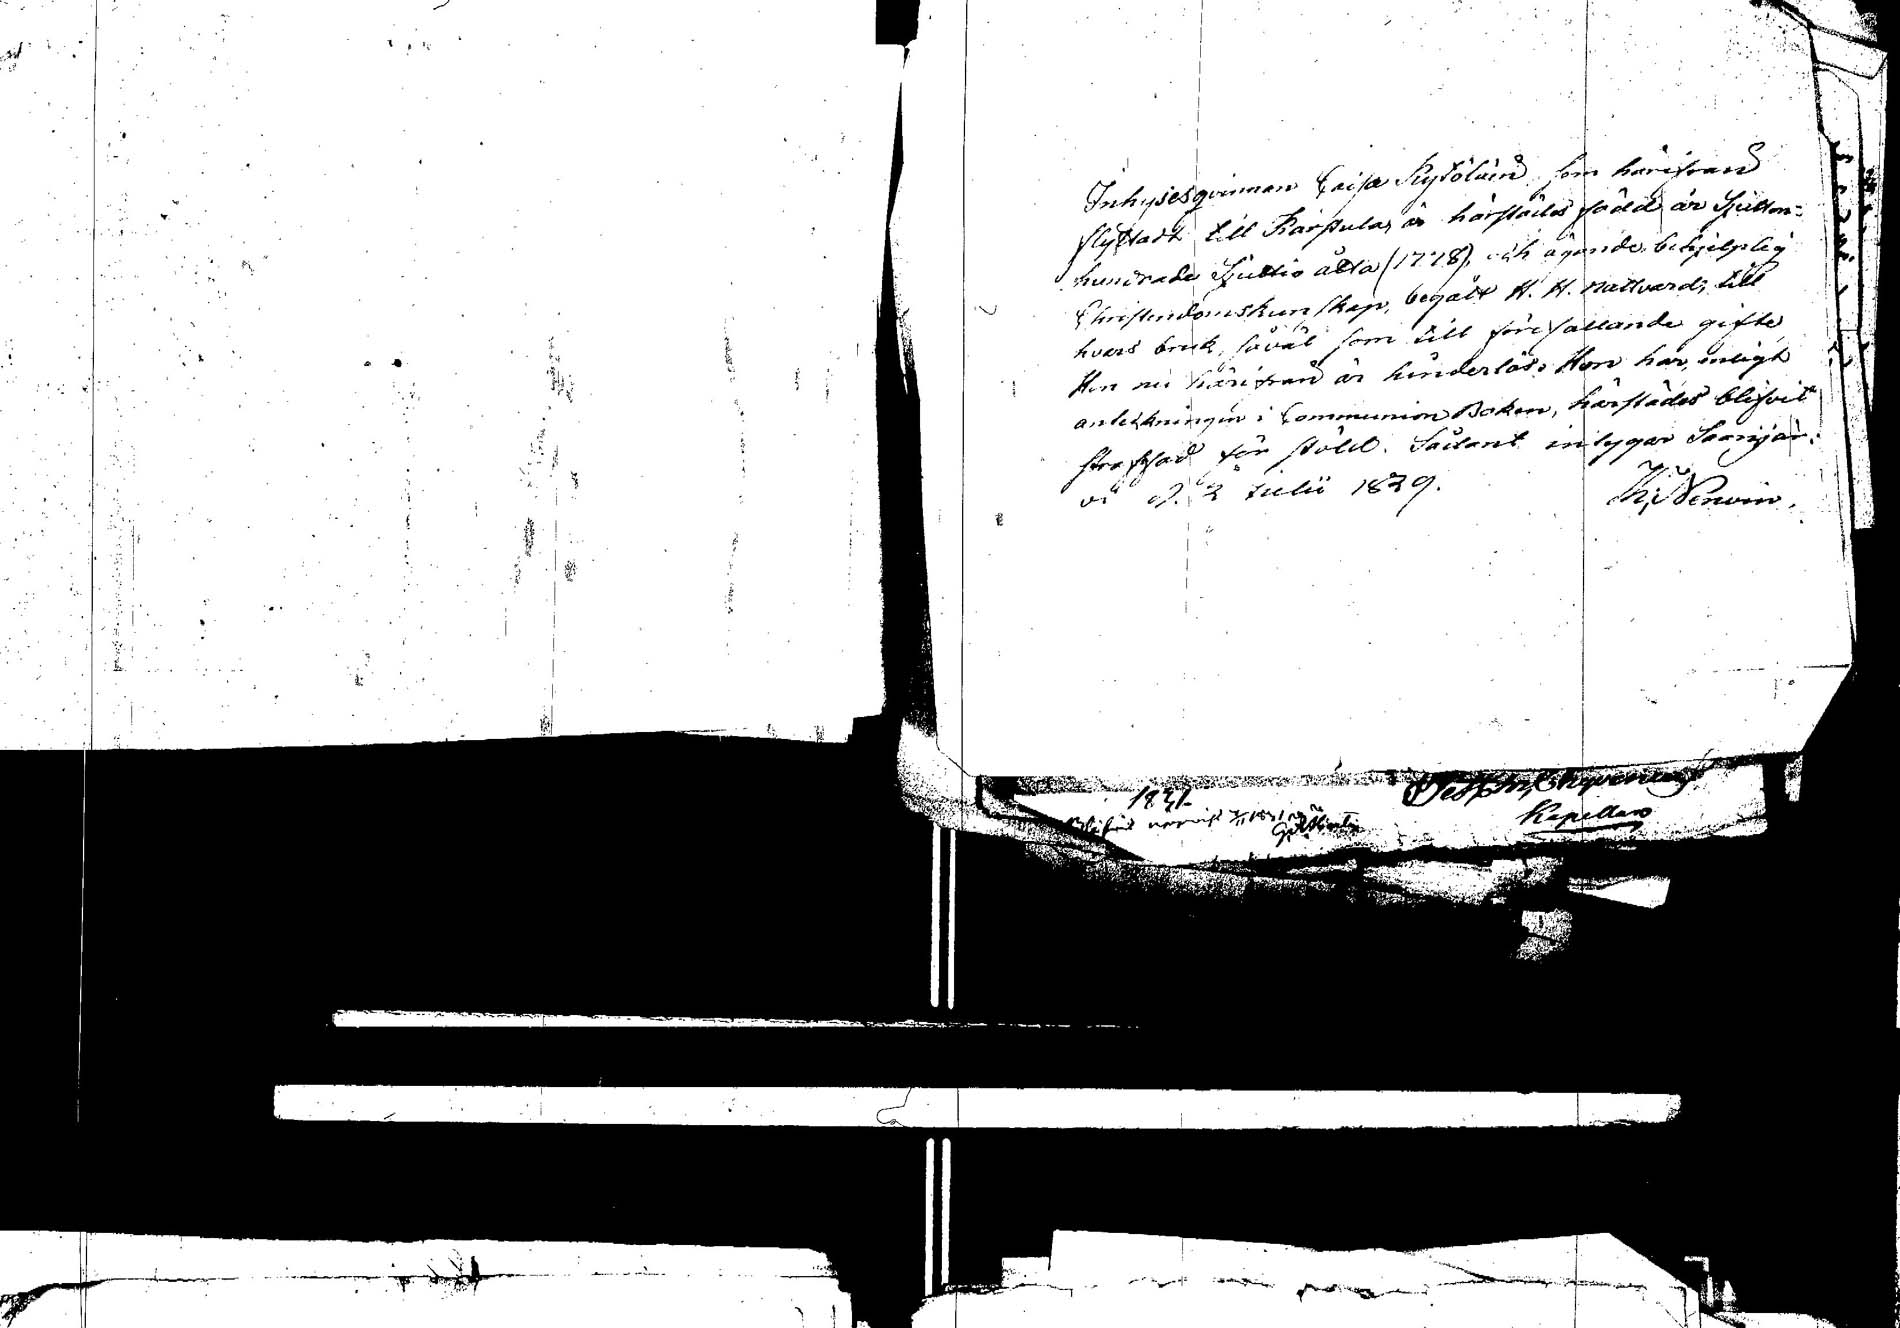 Inhyses qvinnan Caisa Kytöläin som härifrån
flyttadt till Karstula, är härstädes född år Sjutton-
hundrade Sjuttio åtta (1778), och ägande behjelplig
Christendomskunskap, begått H. H. Nattvard, till
hvars bruk, såväl som till förefallande gifte,
Hon nu härifrån är hinderlös. Hon har, enligt
anteckningen i Communion Boken, härstädes blifvit
straffad för stöld. Sådant intygar Saarijär-
vi d. 2 Julii 1839.
1831
Kapellan